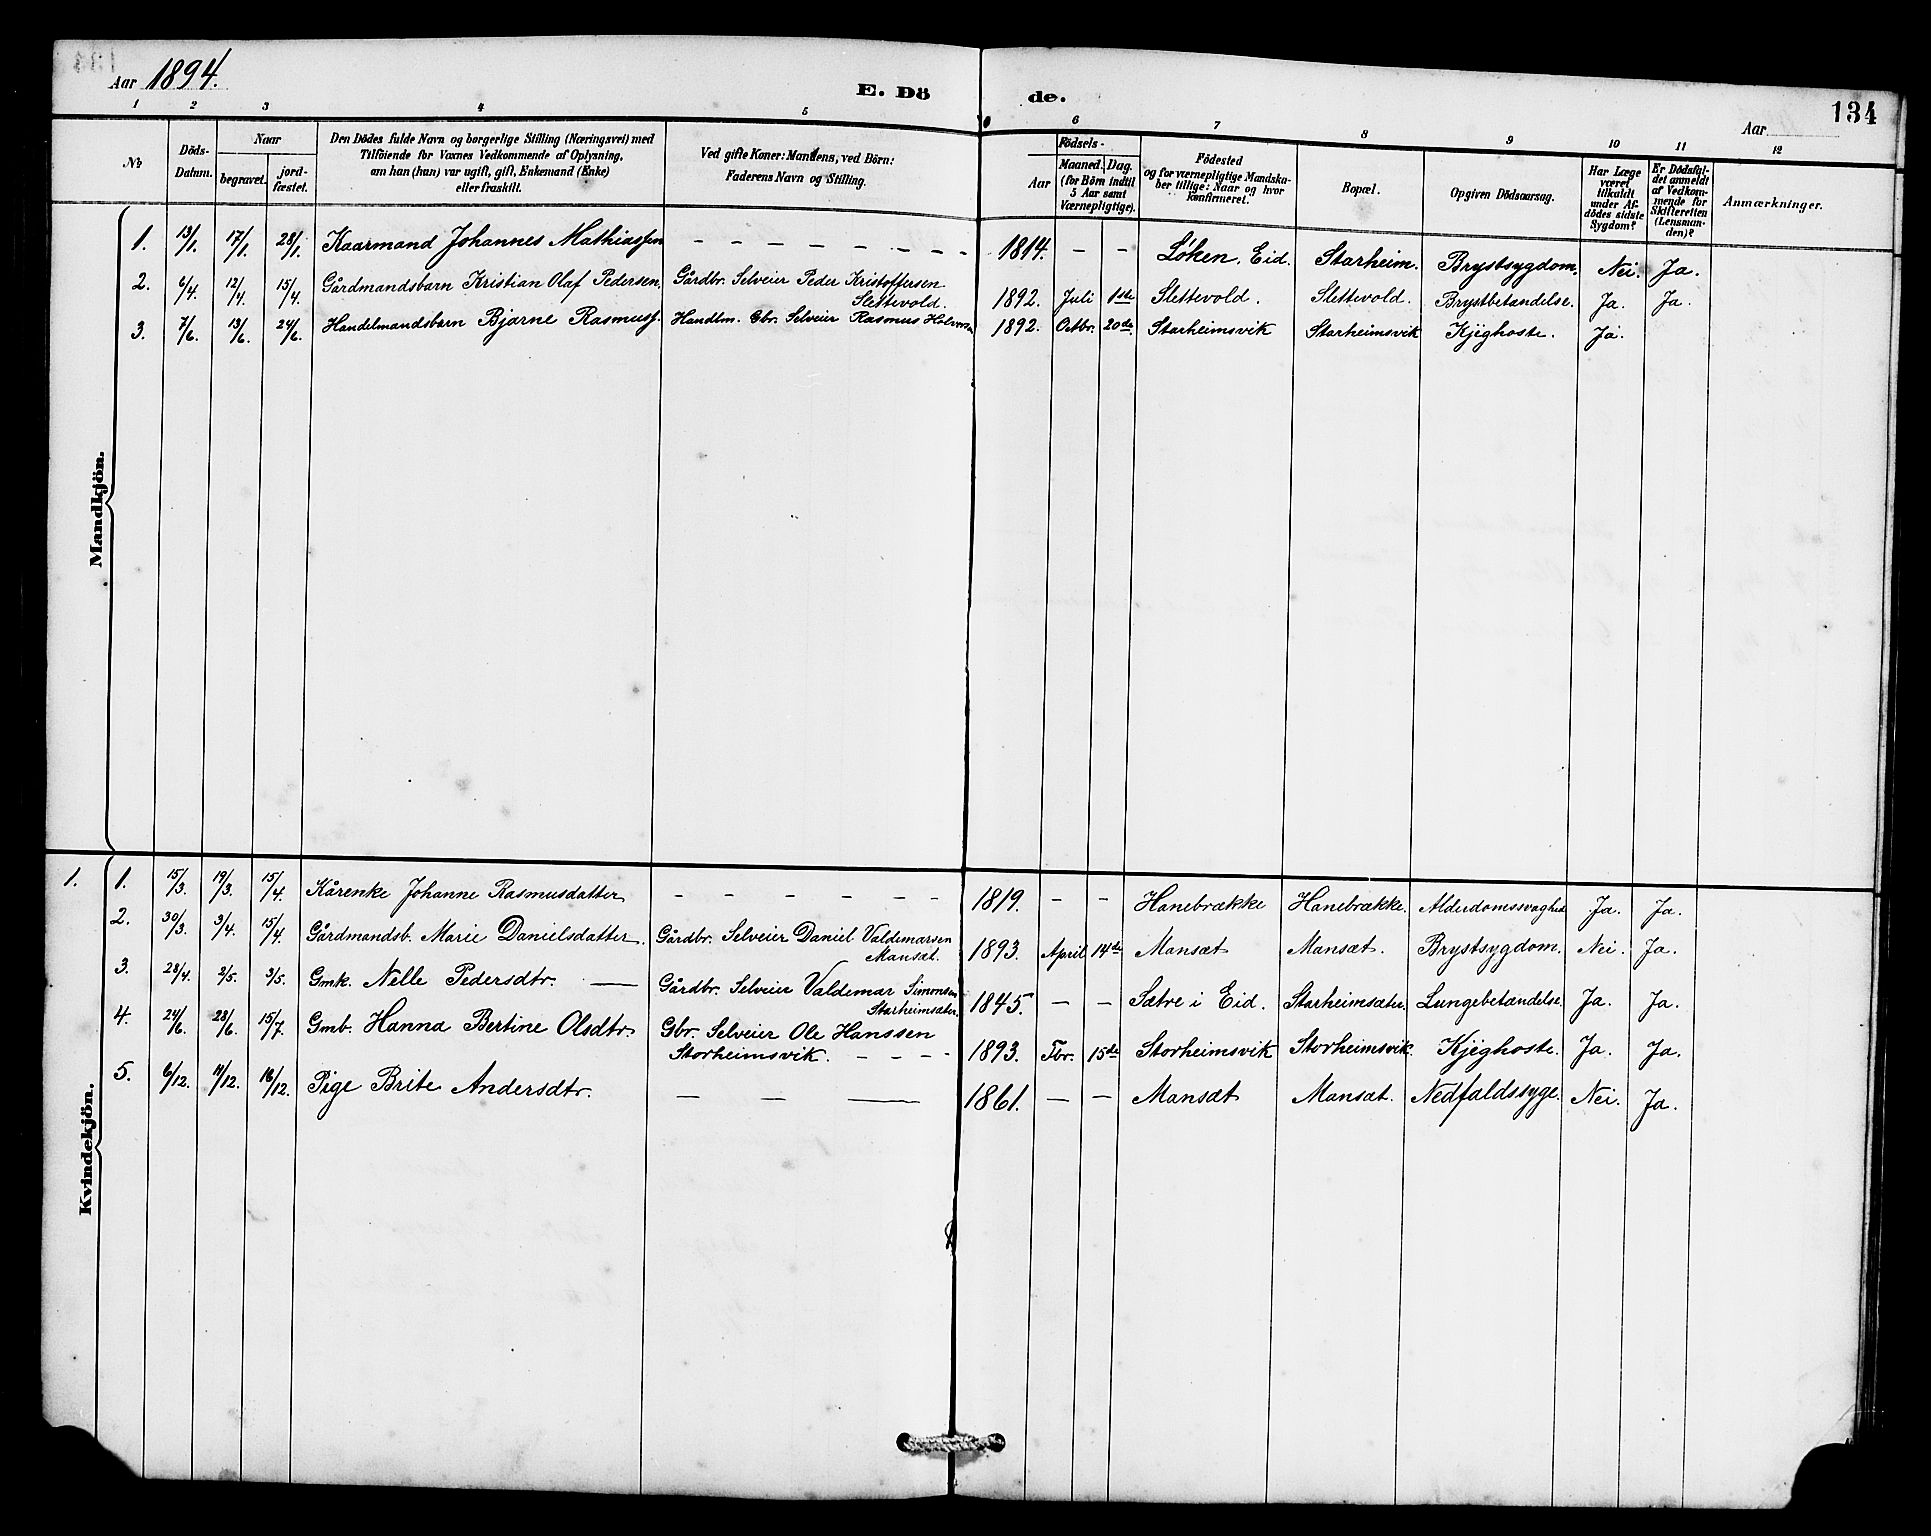 Aar 1894.
E. Dö de.
Aar
134
1 2 3 4 5 6 7 8 9 10 11 12
No
Döds-
Datum.
Naar
begravet. jord-
fæstet.
Den Dödes fulde Navn og borgerlige Stilling (Næringsvei) med
Tilföiende for Voxnes Vedkommende af Oplysning,
om han (hun) var ugift, gift, Enkemand (Enke)
eller fraskilt.
Ved gifte Koner: Mandens, ved Börn:
Faderens Navn og Stilling.
Födsels-
Aar
Maaned. Dag.
(for Börn indtil
5 Aar samt
Værnepligtige).
Födested
og for værnepligtige Mandska-
ber tillige: Naar og hvor
konfirmeret.
Bopæl.
Opgiven Dödsaarsag.
Har Læge
været
tilkaldt
under Af-
dödes sidste
Sygdom?
Er Dödsfal-
det anmeldt
af Vedkom-
mende for
Skifteretten
(Lensman-
den)?
Anmærkninger.
Mandkjön.
1. 13/1. 17/1. 28/1. Kaarmand Johannes Mathiassen - - - - - - - - 1814. - - Löken, Eid. Starheim. Brystsygdom. Nei. Ja.
2. 6/4. 12/4. 15/4. Gårdmandsbarn Kristian Olaf Pedersen. Gårdbr. Selveier Peder Kristoffersen
Slettevold. 1892. Juli 1ste Slettevold. Slettevold. Brystbetændelse. Ja. Ja.
3. 7/6. 13/6. 24/6. Handelmandsbarn Bjarne Rasmuss. Handlm. Gbr. Selveier Rasmus 1892. Octbr. 20de Starheimsvik Starheimsvik Kjighoste. Ja.
Kvindekjön.
1. 1. 15/3. 19/3. 15/4. Kårenke Johanne Rasmusdatter - - - - - - 1819. - - Hanebrække Hanebrække. Alderdomssvaghed Ja. Ja.
2. 30/3. 3/4. 15/4. Gårdmandsb. Marie Danielsdatter. Gårdbr. Selveier Daniel Valdemarsen
Mansæt. 1893. April 14de Mansæt Mansæt. Brystsygdom. Nei. Ja.
3. 28/4. 2/5. 3/5. Gmk. Nelle Pedersdtr. — Gårdbr. Selveier Valdemar Simonsen
Starheimsæter. 1845. - - Sætre i Eid. Starheimsæter. Lungebetændelse. Ja. Ja.
4. 24/6. 28/6. 15/7. Gmb. Hanna Bertine Olsdtr. Gbr. Selveier Ole Hanssen
Storheimsvik. - - - - 1893. Fbr. 15de Storheimsvik Storheimsvik. Kjighoste. Ja. Ja.
5. 6/12. 11/12. 16/12. Pige Brite Andersdtr. — — — 1861. - - Mansæt Mansæt. Nedfaldssyge. Nei. Ja.